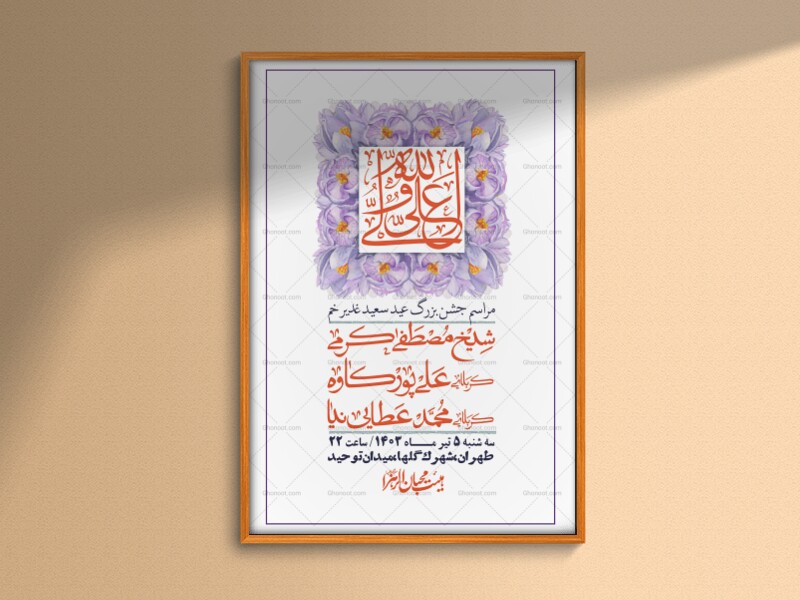 علی ولی الله
مراسم جشن بزرگ عید سعید غدیر خم
شیخ مصطفی کرمی
کربلایی علی پورکاوه
کربلایی محمد عطایی نیا
سه شنبه ۵ تیر مــاه ۱۴۰۳ / ساعت ۲۲
طهران، شهرک گلها، میدان توحید
هیئت محبان الزهرا
Ghonoot.com